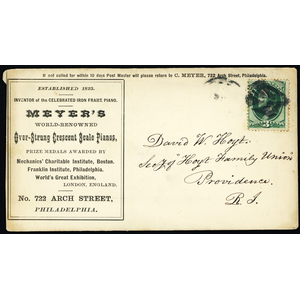 If not called for within 10 days Post Master will please return to C. MEYER, 722 Arch Street, Philadelphia.
ESTABLISHED 1823.
INVENTOR OF THE CELEBRATED IRON FRAME PIANO.
MEYER'S
WORLD-RENOWNED
Over-Strung Crescent Scale Pianos,
PRIZE MEDALS AWARDED BY
Mechanics' Charitable Institute, Boston.
Franklin Institute, Philadelphia.
World's Great Exhibition,
LONDON, ENGLAND.
No. 722 ARCH STREET,
PHILADELPHIA.
David W. Hoyt.
Sec'y of Hoyt Family Union
Providence,
R.I.